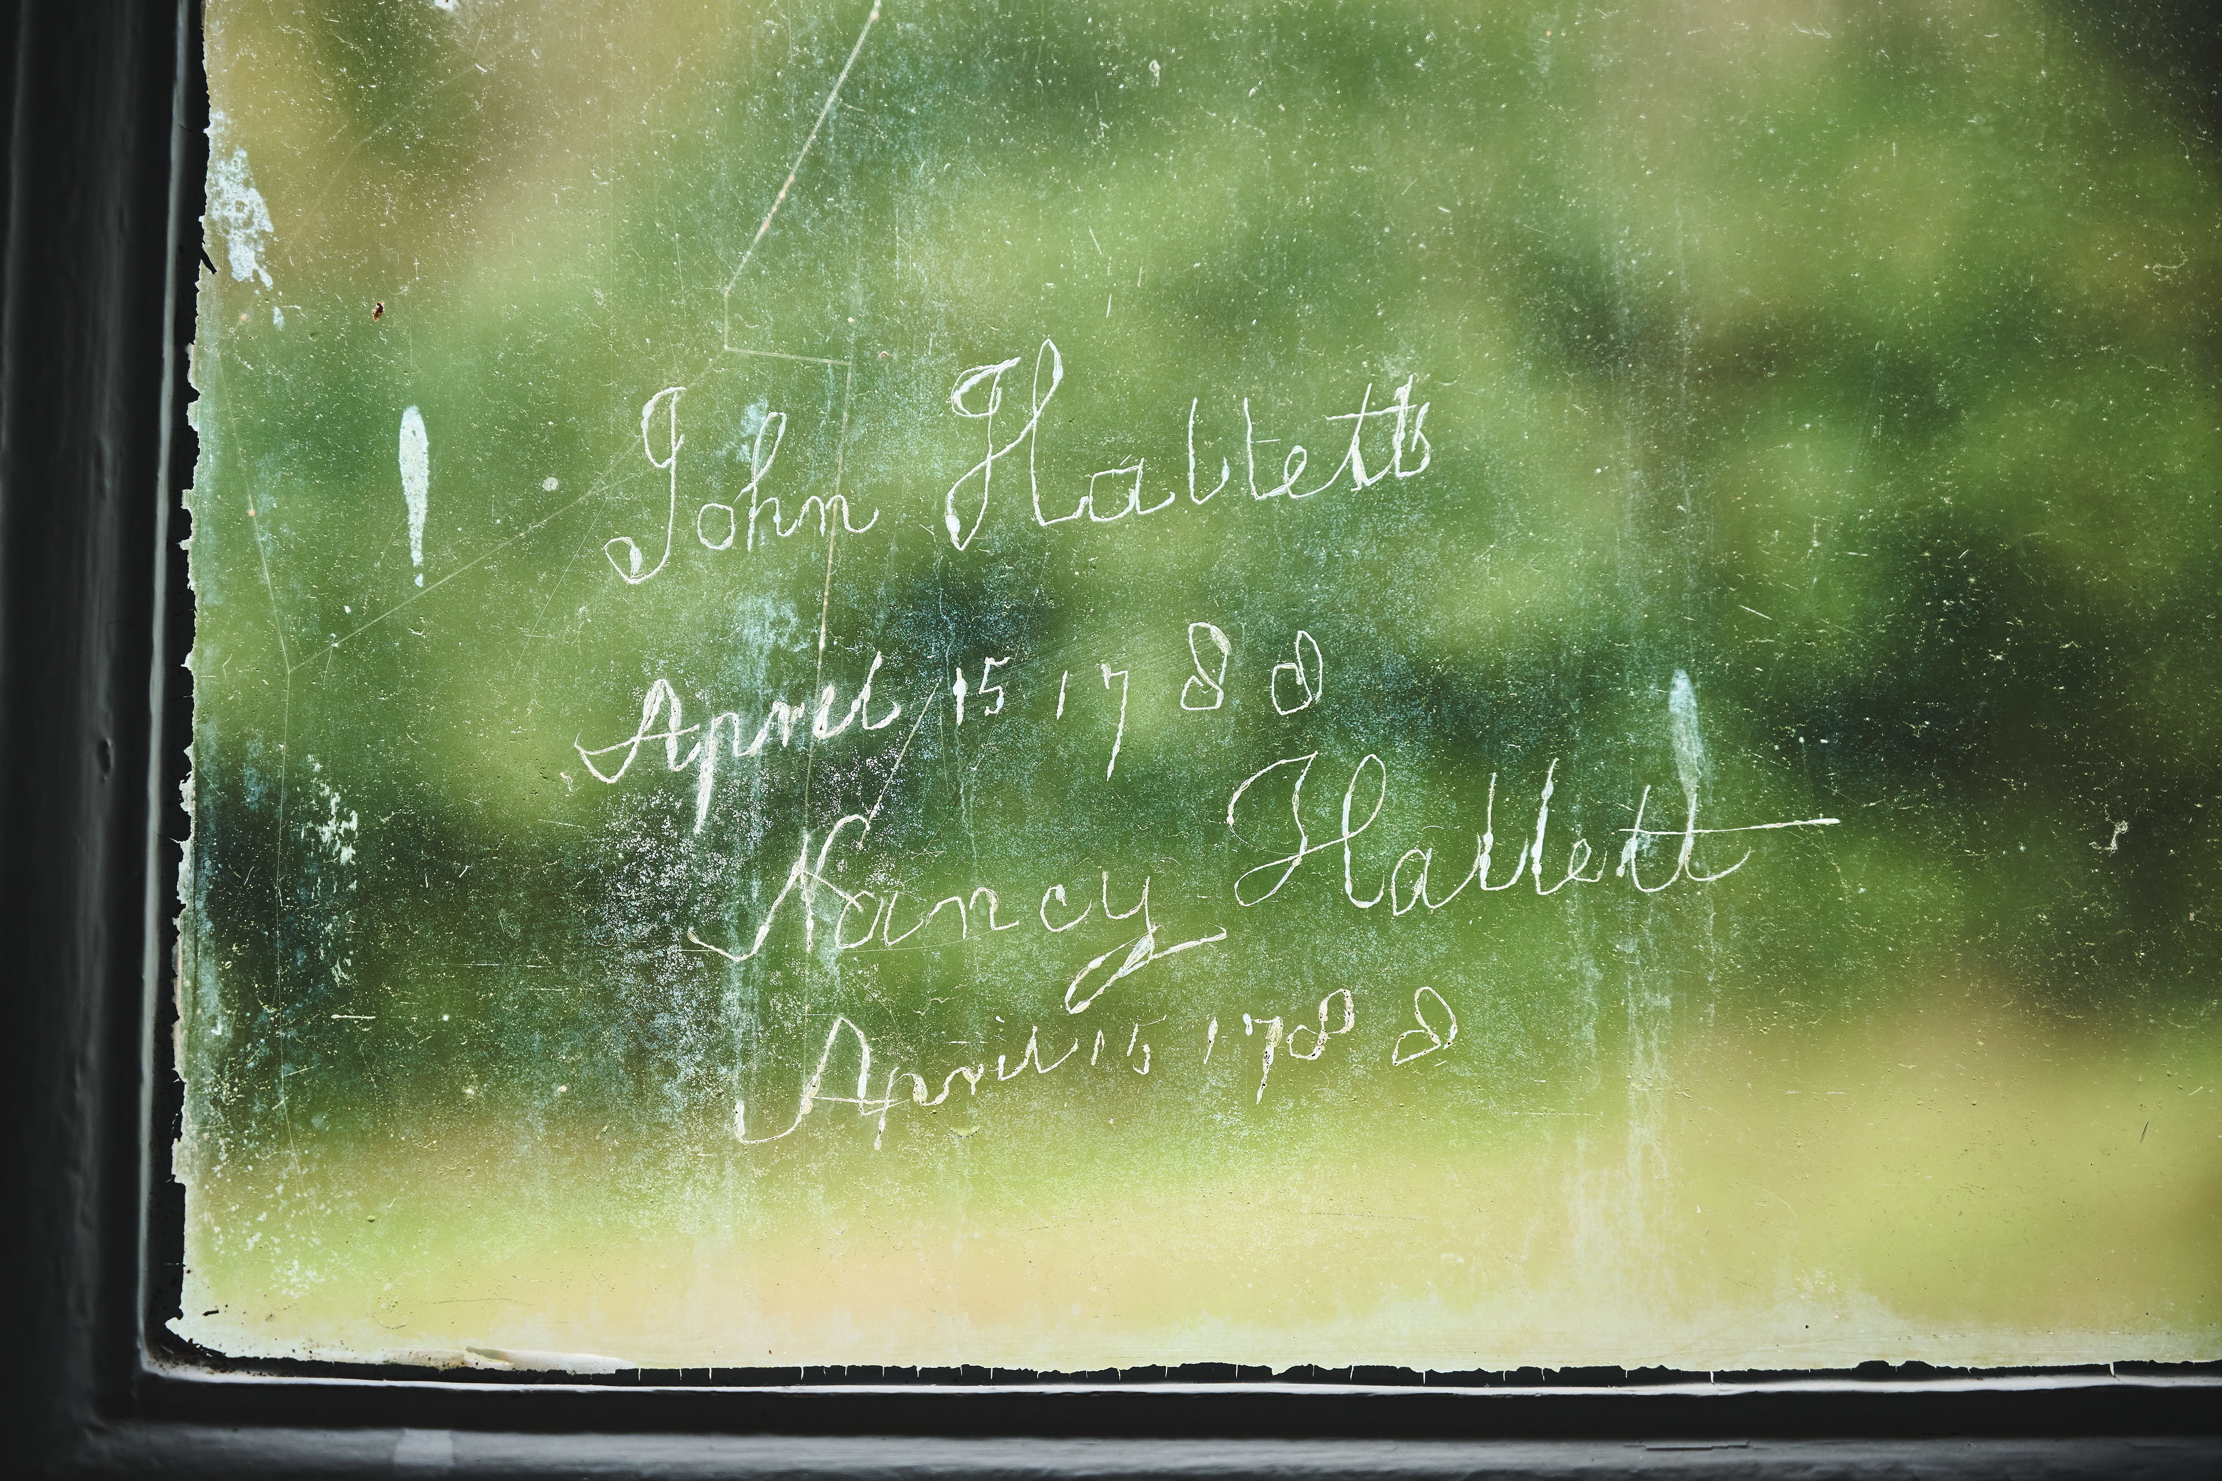 John Hallett
April 15 1788
Nancy Hallett
April 15 1788